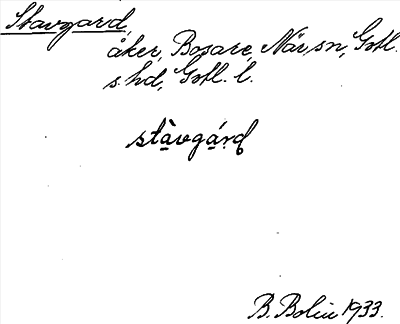 Stavgard,
åker, Bosare, När, sn, Gotl.
s. hd, Gotl. l.
stàvgárd
B. Bolin 1933.